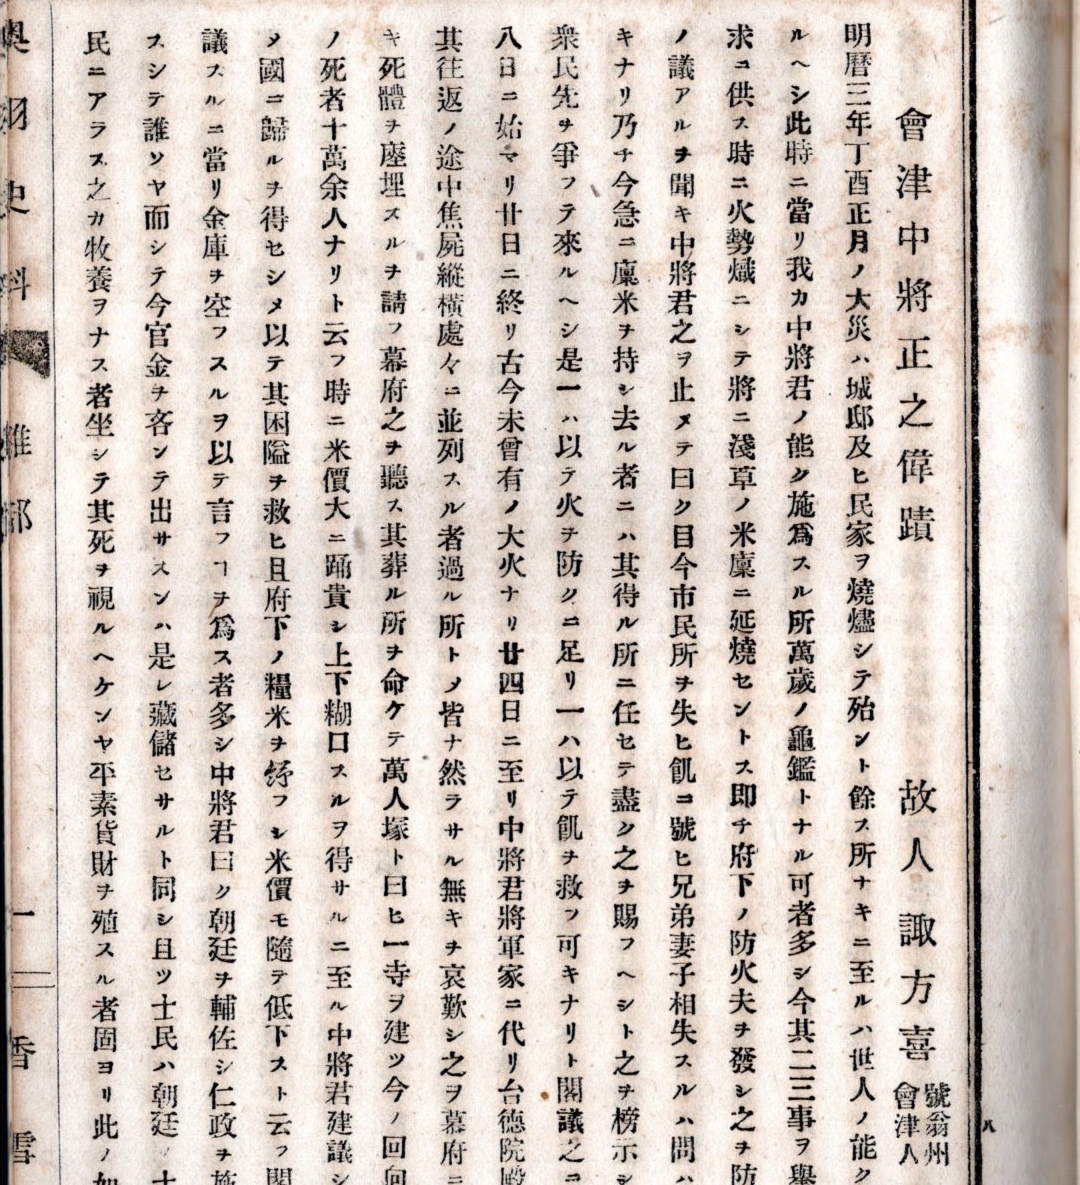 會津中將正之偉蹟　故人 諏方喜 號翁州 會津人
明曆三年丁酉正月ノ大災ハ城邸及ヒ民家ヲ燒燼シテ殆ント餘ス所ナキニ至ルハ世人ノ能ク
ルヘシ此時ニ當リ我カ中將君ノ能ク施爲スル所萬歲ノ龜鑑トナル可者多シ今其二三事ヲ擧
求ニ供ス時ニ火勢熾ニシテ將ニ淺草ノ米廩ニ延燒セントス即チ府下ノ防火夫ヲ發シ之ヲ防
ノ議アルヲ聞キ中將君之ヲ止メテ曰ク目今市民所ヲ失ヒ飢ニ號ヒ兄弟妻子相失スルハ問ハ
キナリ乃チ今急ニ廩米ヲ持シ去ル者ニハ其得ル所ニ任セテ盡ク之ヲ賜フヘシト之ヲ榜示シ
衆民先ヲ爭フテ來ルヘシ是一ハ以テ火ヲ防クニ足リ一ハ以テ飢ヲ救フ可キナリト閣議之ニ
八日ニ始マリ廿日ニ終リ古今未曾有ノ大火ナリ廿四日ニ至リ中將君將軍家ニ代リ台德院殿
其往返ノ途中焦屍縱橫處々ニ並列スル者過ル所トメ皆ナ然ラサル無キヲ哀歎シ之ヲ幕府ニ
キ死體ヲ座埋スルヲ請フ幕府之ヲ聽ス其葬ル所ヲ命ケテ萬人塚ト曰ヒ一寺ヲ建ツ今ノ回向
ノ死者十萬余人ナリト云フ時ニ米價大ニ踊貴シ上下糊口スルヲ得サルニ至ル中將君建議シ
メ國ニ歸ルヲ得セシメ以テ其困隘ヲ救ヒ且府下ノ糧米ヲ紓フシ米價モ隨テ低下スト云フ閣
議スルニ當リ金庫ヲ空フスルヲ以テ言フヿヲ爲ス者多シ中將君曰ク朝廷ヲ輔佐シ仁政ヲ施
スシテ誰ソヤ而シテ今官金ヲ吝ンテ出サスンハ是レ藏儲セサルト同シ且ツ士民ハ朝廷ノ士
民ニアラス之カ牧養ヲナス者坐シテ其死ヲ視ルヘケンヤ平素貨財ヲ殖スル者固ヨリ此ノ如
奧羽史料 雜部 一 香雪
八